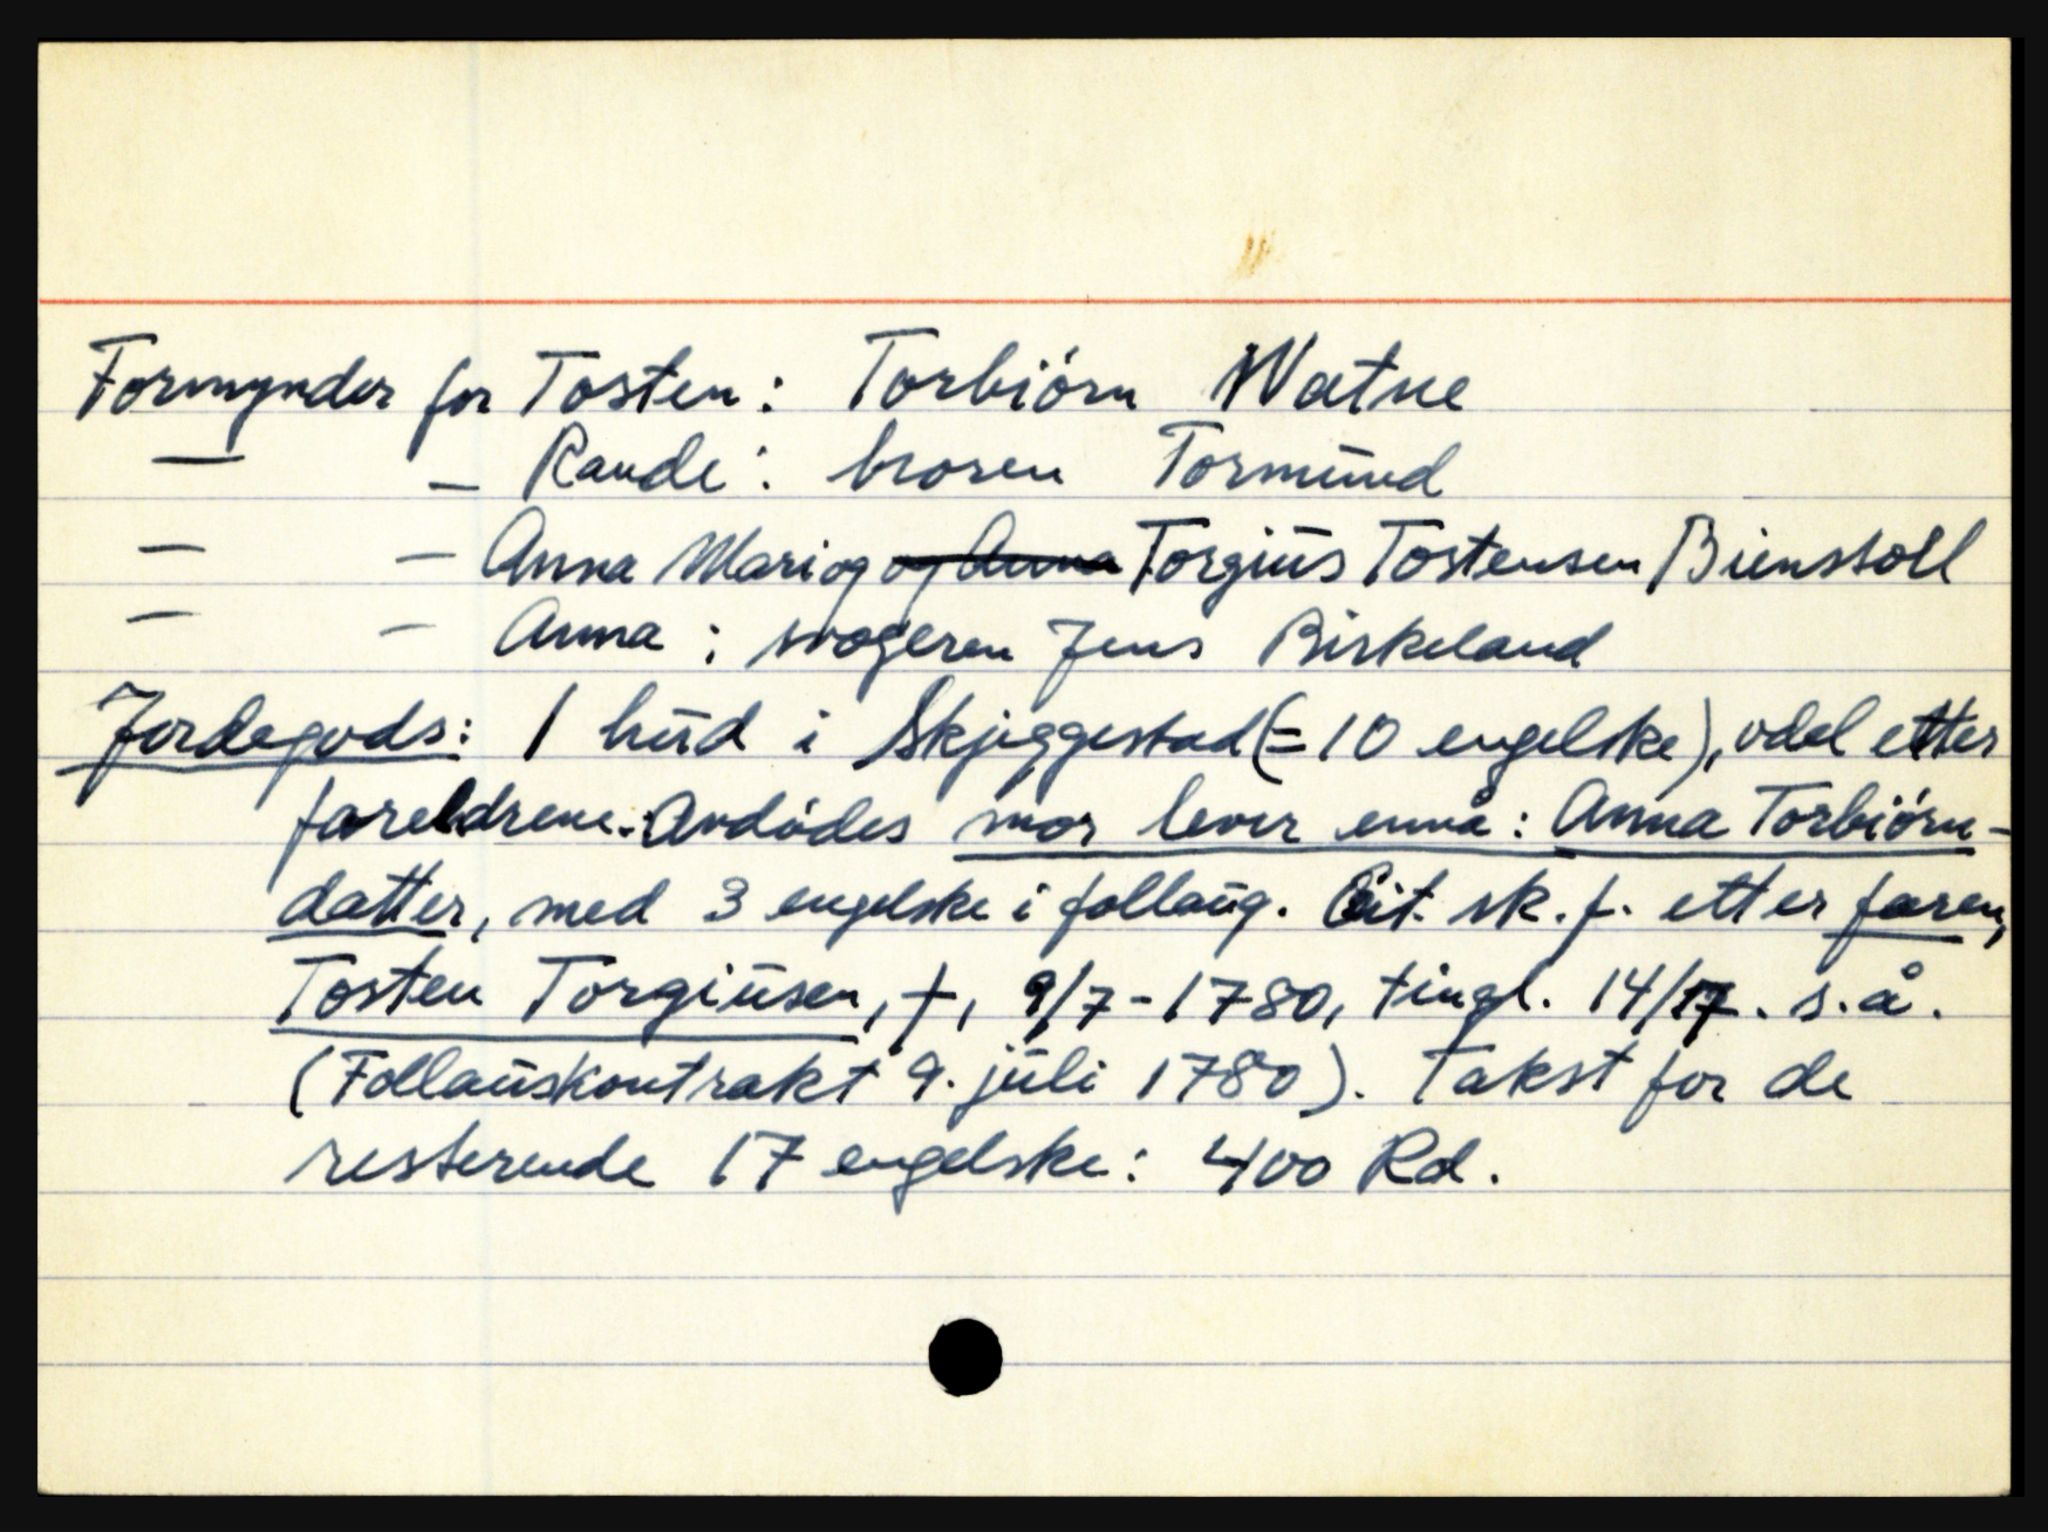 Formynder for Tosten: Torbiörn Watne
— – Rande: broren Tormund
– – Anna Mari og og Anna Torgius Tostensen Bienstoll
– – Anna: svogeren Jens Birkeland
Jordegods: 1 hud i Skjeggestad (= 10 engelske), odel etter
foreldrene. Avdødes mor lever ennå: Anna Torbiörn-
datter, med 3 engelske i follaug. Cit. sk.f. etter faren,
Tosten Torgiusen, †, 9/7-1780, tingl. 14/17. s.å.
(Follauskontrakt 9. juli 1780). Takst for de
resterende 17 engelske: 400 Rd.